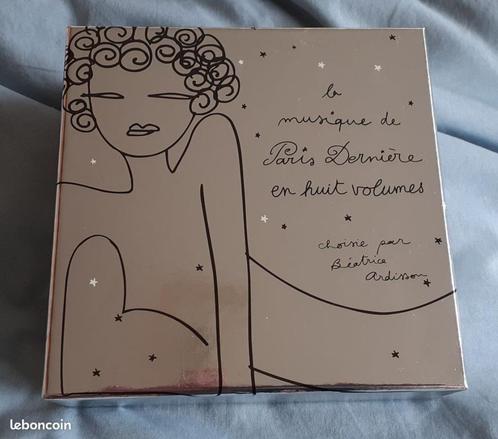 la
musique de
Paris Dernière
en huit volumes
choisie par
Béatrice
Ardisson
leboncoin